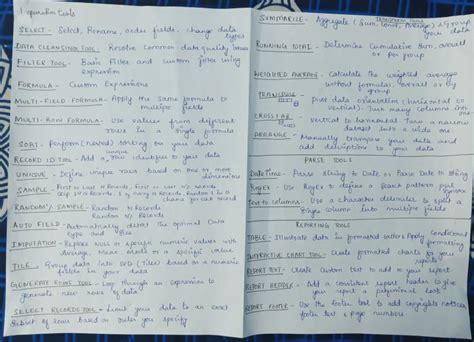 Preparation tools
SELECT - Select, Rename, order fields, change data
types
DATA CLEANSING TOOL - Resolve common data quality issues
FILTER TOOL - Basic Filter and custom filter using
expression
FORMULA - Custom Expressions
MULTI-FIELD FORMULA - Apply the same formula to
multiple fields
MULTI-ROW FORMULA - Use values from different
rows in a single formula
SORT - Perform (nested) sorting on your data
RECORD ID TOOL - Add a unique identifier to your data
UNIQUE - Define unique rows based on one or more
dimensions
SAMPLE - First or last N Records, first or last N% records
skip N Records & 1 in every N Records, random 1 in N
chance for each record
RANDOM % SAMPLE - Random N Records
Random N% Records
AUTO FIELD - Automatically detect the optimal Data
type and size
IMPUTATION - Replace Null or specific numeric values with
Average, Mean, mode or a specific value
TILE - Group data into sets (Tiles) based on a numeric
fields in your data
GENERATE ROWS TOOL - Loop through an expression to
generate new rows of data
SELECT RECORDS TOOL - Limit your data to an exact
subset of rows based on rules you specify
TRANSFORM TOOLS
SUMMARIZE - Aggregate (Sum, Count, Average) & Group
your data
RUNNING TOTAL - Determine Cumulative Sum, overall
or per group
WEIGHTED AVERAGE - Calculate the weighted average
without formulas, overall or by
group
TRANSPOSE - Pivot data orientation (horizontal to
vertical). Turn many columns into
CROSSTAB - vertical to horizontal. Turn a narrow
dataset into a wide one
ARRANGE - Manually transpose your data and
add descriptions to your data
PARSE TOOLS
DateTime - Parse String to Date or Parse Date to String
RegEx - Use RegEx to define a search pattern
Text to columns - Use a character delimiter to split a
single column into multiple fields
REPORTING TOOLS
TABLE - Illustrate data in formatted tables & Apply Conditional
formatting
INTERACTIVE CHART TOOL - Create formatted charts to your
reports
REPORT TEXT - Create Custom text to add to your report
REPORT HEADER - Add a consistent report header to give
your report a professional look
REPORT FOOTER - Use the footer tool to add copyrights notices,
footer text & page numbers